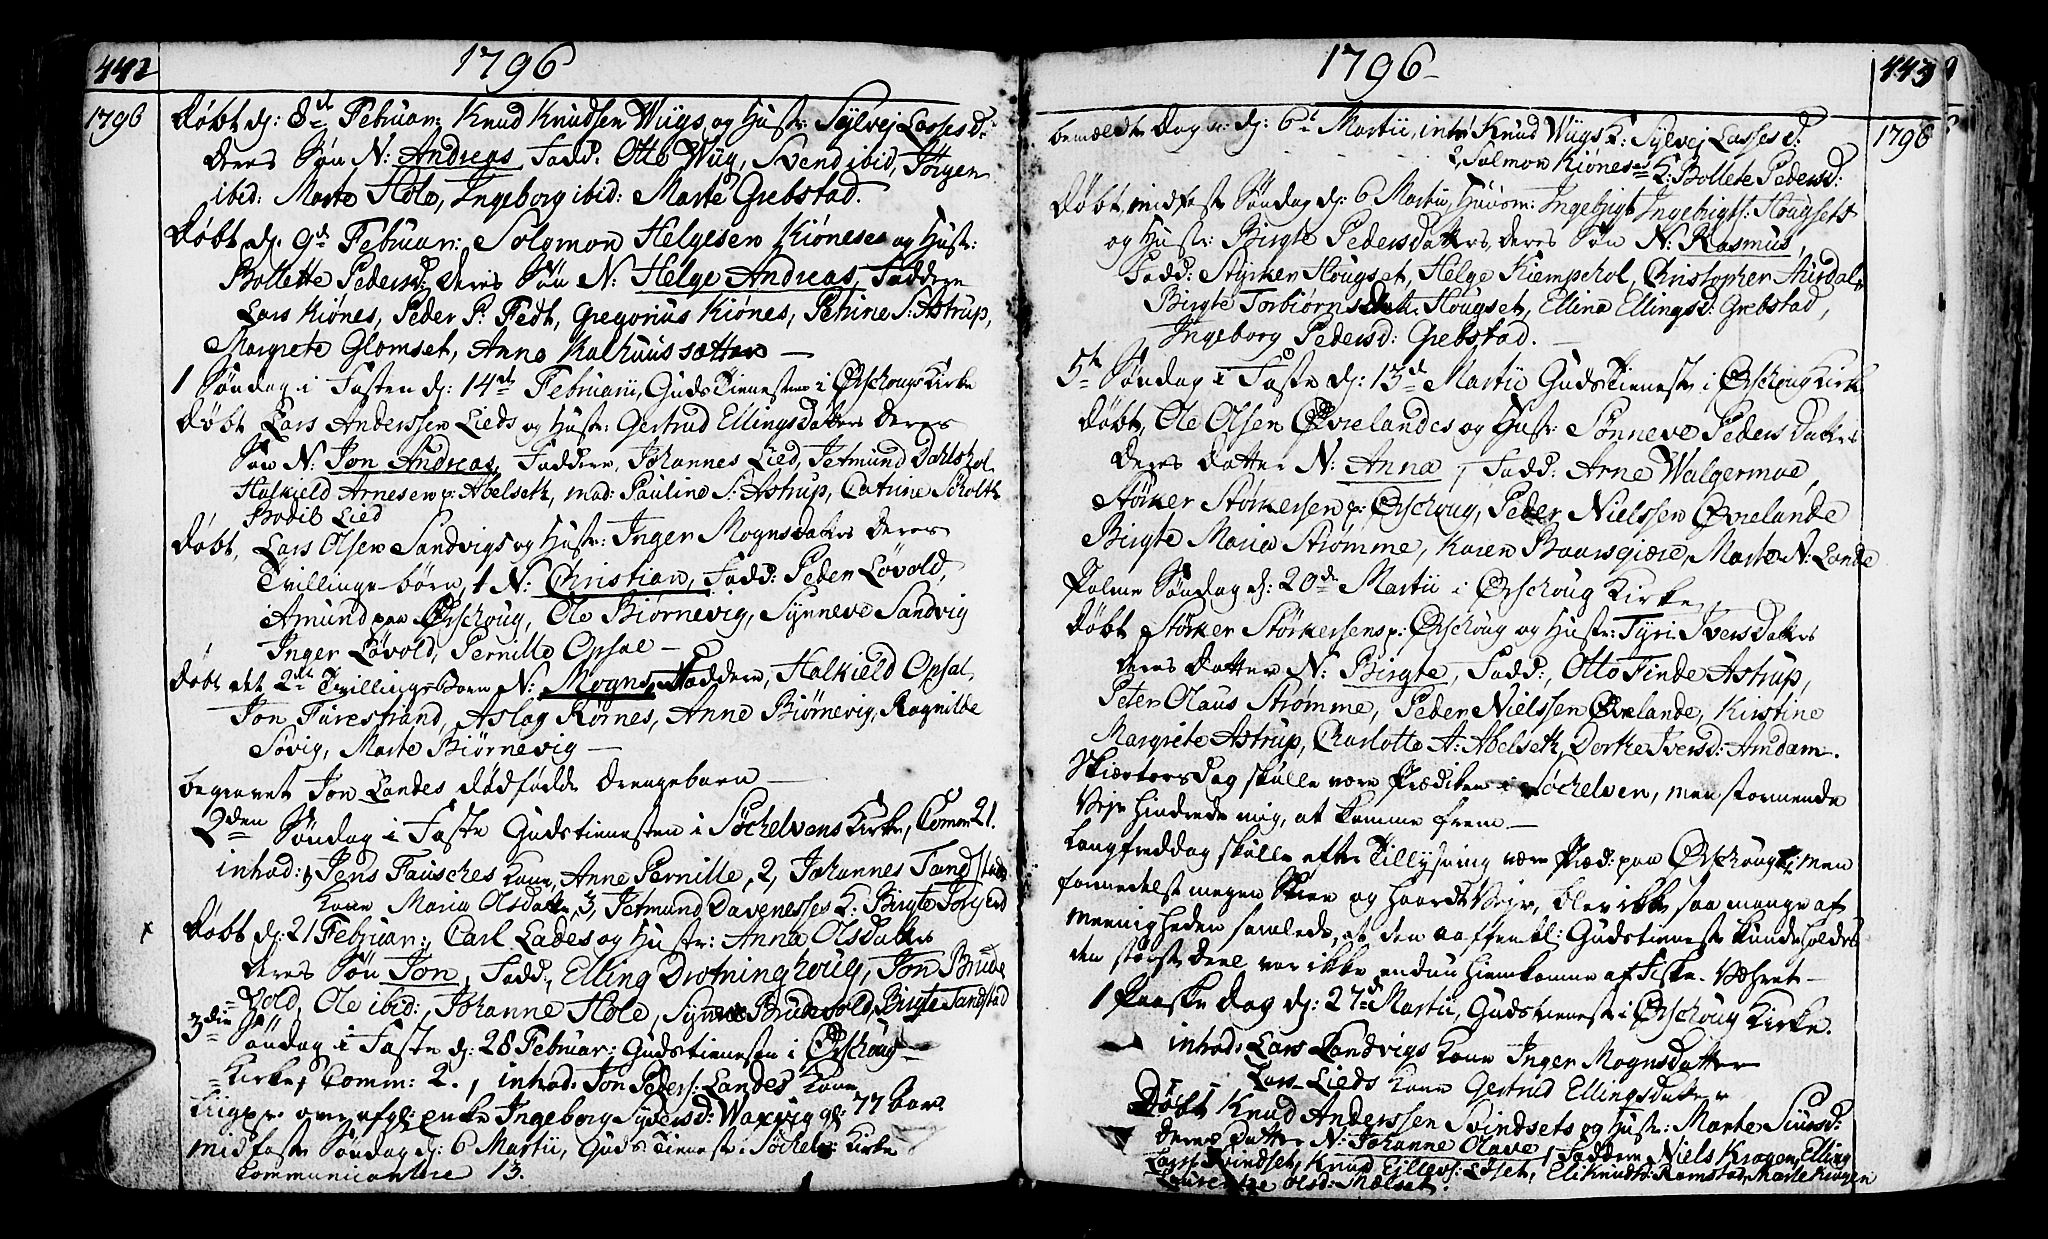 442
1796
1796
Døbt d: 8de Februar: Knud Knudsen Wiigs og Hustr: Sylvej Lassesd:
deres Søn N: Andreas Fadd: Otto Wiig, Svend ibid, Jørgen
ibid: Marte Hole, Ingeborg ibid: Marte Grebstad.
Døbt d: 9de Februar: Solomon Helgesen Kiønes og Hustr:
Bollette Pedersd: deres Søn N: Helge Andreas, Faddere
Lars Kiønes, Peder P: Fedt, Gregorius Kiønes, Petrine S: Astrup,
Margrete Glomset, Anne Kalhuussætter —
1 Søndag i Fasten d: 14de Februarii, Guds Tienesten i Ørschougs Kirke
Døbt Lars Anderssen Lieds og Hustr: Gertrud Ellings Datters deres
Søn N: Jon Andreas, Faddere, Johannes Lied, Jetmund Dahlshol
Halkield Arnesen p: Abelseth, mad: Pauline S: Astrup, Catrine Søholth
Bodil Lied
Døbt, Lars Olsen Sandvigs og Hustr: Inger Mognsdatters deres
Tvillinge-børn, 1 N: Christian, Fadd: Peder Løvold,
Amund paa Ørschoug, Ole Biørnevig, Synneve Sandvig
Inger Løvold, Pernille Opsal —
Døbt det 2det Tvillinge Barn N: Mogns, Faddere, Halkield Opsal,
Jon Furestrand, Aslag Rørnes, Anne Biørnevig, Ragnilde
Sovig, Marte Biørnevig —
begravet Jon Landes dødfødde drengebarn —
2den Søndag i Faste Gudstienesten i Søchelvens Kirke, Comm 21.
introd: 1, Jens Fausches Kone, Anne Pernille, 2, Johannes Tandstads
Kone Maria Olsdatter, 3, Jetmund Davenesses K: Birgte
Døbt d: 21 Februar:, Carl Lades og Hustr: Anna Olsdatters
deres Søn Jon, Fadd:, Elling Drotninghoug, Jon Brude
vold, Ole ibid:, Johanne Hole, Synneve Brudevold, Birgte Tandstad
3die Søndag i Faste d: 28 Februar: Gudstienesten i Ørschoug
Kirke, Comm: 2., introd: Jon Peders: Landes Kone
over afgl: enke Ingeborg Syversd: Waxvig gl: 77 aar.
midfaste Søndag d: 6 Martii, Guds Tieneste i Søchelv: Kirke
Communicantere 13.
1796
443
1796
bemældte dag d: 6te Martii, intr: 1 Knud Wiigs K: Sylvej Lassesd:
2, Salmon Kiønes K: Bollete Pedersd:
Døbt, midfaste Søndag d: 6 Martii, Ingebrigt Ingebrigts: Hougsets
og Hustr: Birgte Peders Datters, deres Søn N: Rasmus,
Fadd: Styrker Hougset, Helge Kiempehol, Christopher
Birgte Torbiørnsdatt: Hougset, Ellina Ellingsd: Grebstad,
Ingeborg Pedersd: Grebstad.
5te Søndag i Faste d: 13de Martii Guds Tieneste i Ørschoug Kirke
Døbt, Ole Olsen Øvrelandes og Hustr: Sønneve Peders Datters
deres datter N: Anna, Fadd: Arne Walgermoe,
Størker Størkersen p: Ørschoug, Peder Nielssen Øvrelande
Birgte Maria Strømme, Karen Baarsgiære, Marte N: Lande
Palme Søndag d: 20de Martii i Ørschoug Kirke,
Døbt Størker Størkersens p: Ørschoug og Hustr: Tyri Ivers Datters
deres datter N: Birgte, Fadd:, Otto Finde Astrup,
Peter Olaus Strømme, Peder Nielssen Øvrelande, Kirstine
Margrete Astrup, Charlotte A: Abelseth, Dorthe Iversd: Amdam.
Skiærtorsdag skulle være Prædiken i Søchelven, men stormende
Vejr hindrede mig, at komme frem —
Langfreddag skulle efter Tillysning være Præd: paa Ørschoug, men
formedelst megen Snee og haardt Vejr, blev ikke saa mange af
menigheden samlede, at den Gudstieneste kunde holdes
den største deel var ikke endnu hiemkomne af Fiske-Været —
1 Paaske dag d: 27de Martii, Gudstieneste i Ørschoug Kirke.
introd: Lars Sandvigs Kone Inger Mognsdatter
Lars Lieds Kone Gertrud Ellingsdatter
Døbt Knud Anderssen Svindsets og Hustr: Marte Siursd:
deres datter N: Johanne Olave, Faddere Niels Kragen, Elling
Svindset, Knud, Eli Knudsd: Ramstad, Marte Kragen
Olsd: